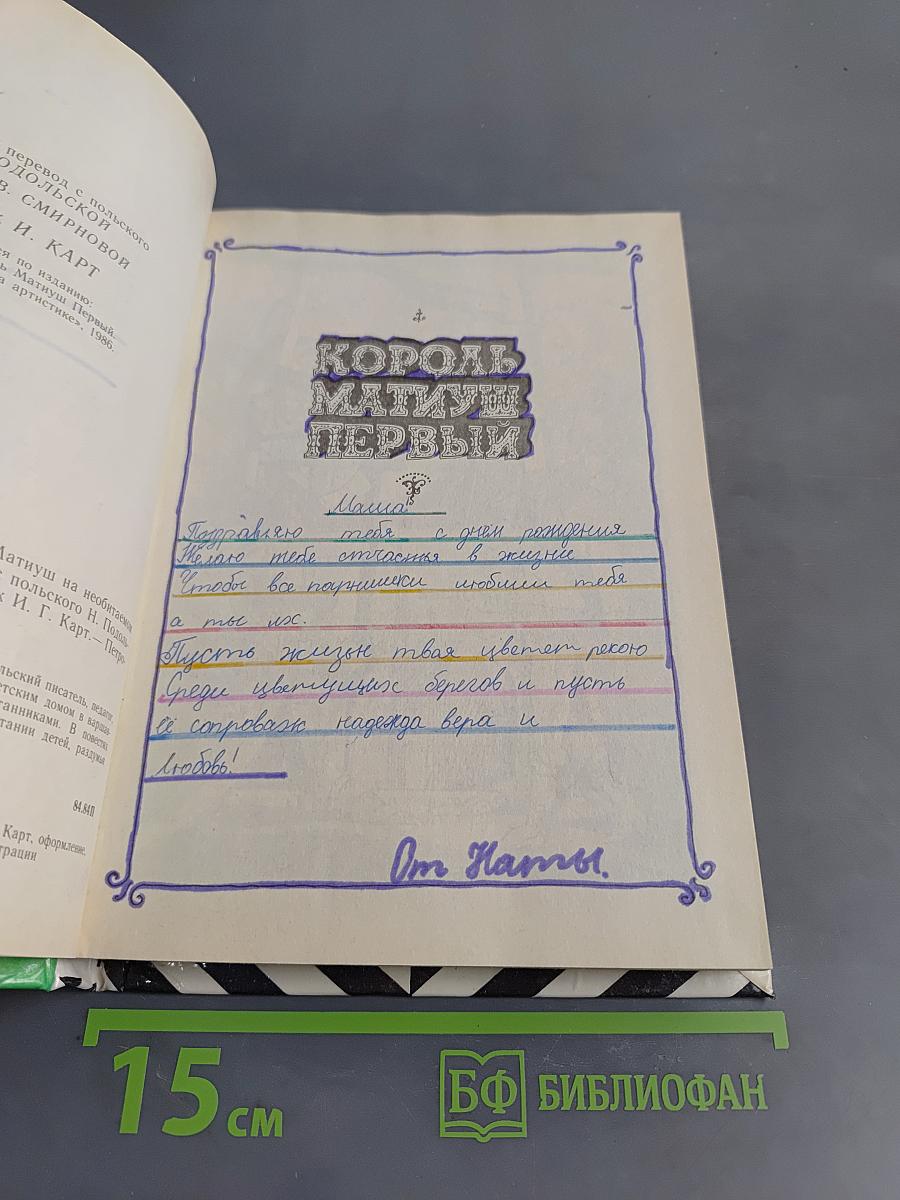 перевод с польского
ОДОЛЬСКОЙ
В. СМИРНОВОЙ
И. КАРТ
ся по изданию:
ь Матиуш Первый.
а артистике», 1986.
Матиуш на необитаемом
с польского Н. Подоль-
к И. Г. Карт.— Петро-
льский писатель, педагог,
етским домом в варшав-
танниками. В повестях
тании детей, раздумья
84.84П
Карт, оформление,
трации
КОРОЛЬ
МАТИУШ
ПЕРВЫЙ
Маша!
Поздравляю тебя с днём рождения
Желаю тебе стчастья в жизне
Чтобы все парнишки любили тебя
а ты их.
Пусть жизьн твая цветет рекою
Среди цветущих берегов и пусть
её сопроваж надежда вера и
Любовь!
От Наты.
15 см
БФ БИБЛИОФАН